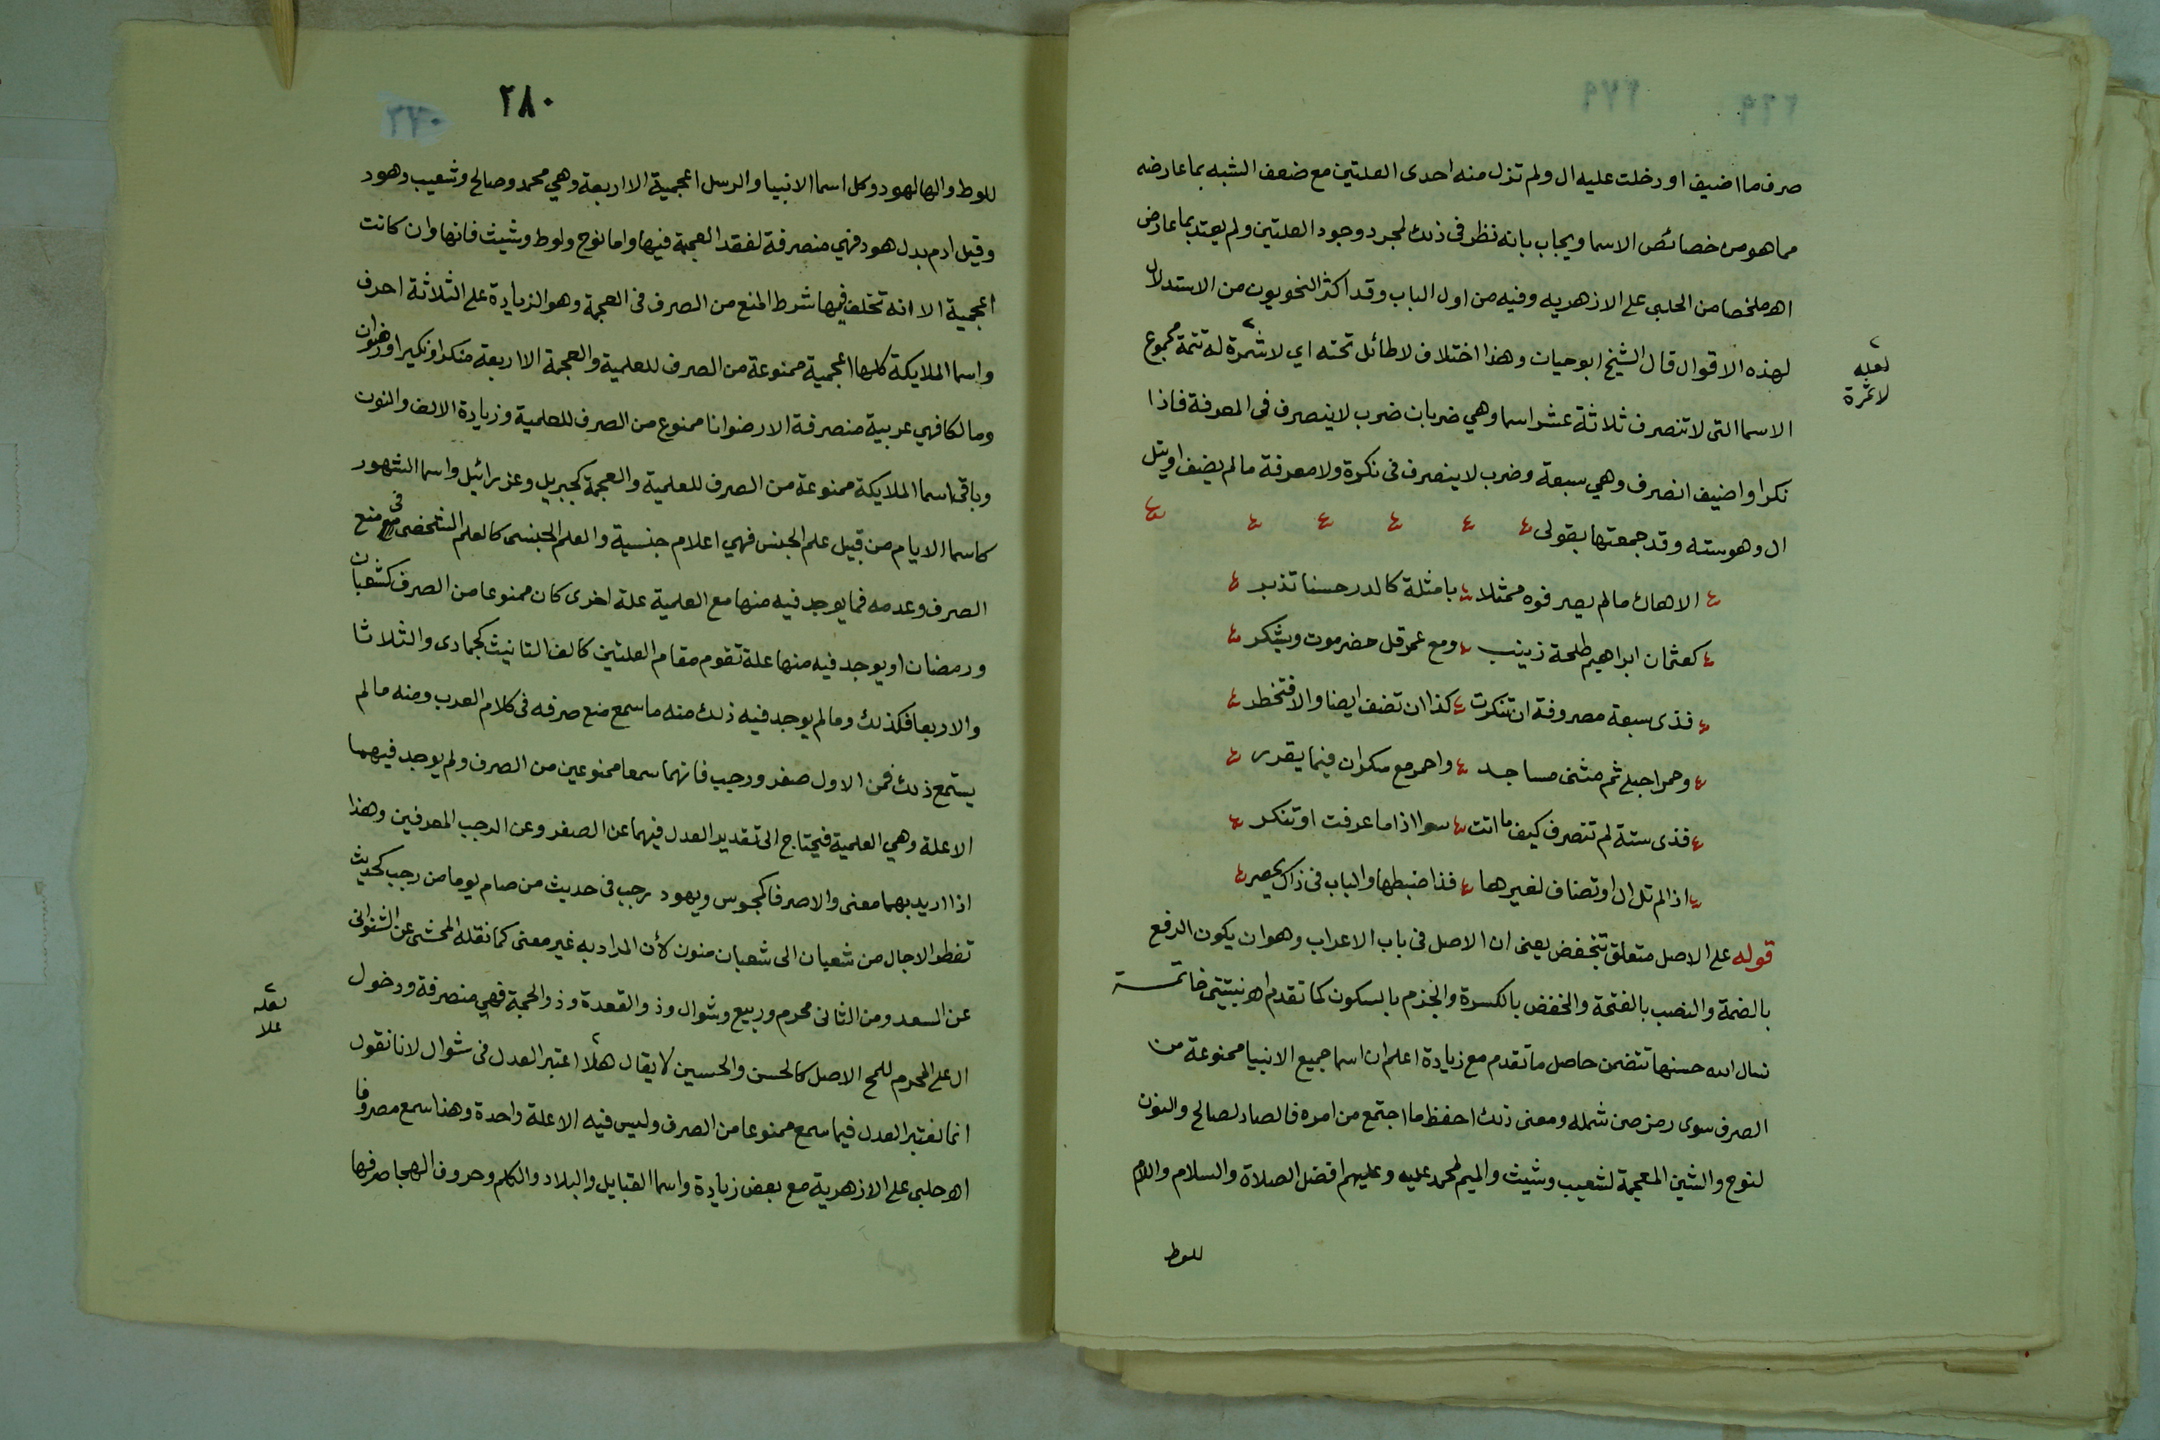 صرف ما اضيف او دخلت عليه ال ولم تزل منه احدى العلتين مع ضعف الشبه بما عارضه
مما هو من خصائص الاسما ويجاب بانه نظر فى ذلك لمجرد وجود العلتين ولم يعتد بما عارض
اه ملخصا من الحلبى على الازهريه وفيه من اول الباب وقد اكثر النحويون من الاستدلال
لهذه الاقوال قال الشيخ ابو حيان وهذا اختلاف لا طائل تحته اي لا شمرة له تتمة مجموع
لعله
لا ثمرة
الاسما التى لا تنصرف ثلاثة عشر اسما وهي ضربان ضرب لا ينصرف فى المعرفة فاذا
نكر او اضيف انصرف وهي سبعة وضرب لا ينصرف فى نكرة ولا معرفة ما لم يضف او يتل
ال وهو سته وقد جمعتها بقولى
الا هاك ما لم يصرفوه ممثلا بامثلة كالدر حسنا تذبر
كعثمان ابراهيم طلحة زينب ومع عمر قل حضرموت ويشكر
فذى سبعة مصروفة ان تنكرت كذا ان تضف ايضا والا فتخطر
وحمرا حبلى ثم مثنى مساجد واحمر مع سكران فيما يقدر
فذى ستة لم تنصرف كيف ما اتت سوا اذا ما عرفت او تنكر
اذا لم تل ال او تضاف لغيرها فذا ضبطها والباب فى ذاك يحصر
قوله على الاصل متعلق بتخفض يعنى ان الاصل فى باب الاعراب وهو ان يكون الرفع
بالضمة والنصب بالفتحة والخفض بالكسرة والجزم بالسكون كما تقدم اه نبتيتى خاتمـــة
نسال الله حسنها تتضمن حاصل ما تقدم مع زيادة اعلم ان اسما جميع الانبيا ممنوعة من
الصرف سوى رمز صن شمله ومعنى ذلك احفظ ما اجتمع من امره فالصاد لصالح والنون
لنوح والشين المعجمة لشعيب وشيث والميم لمحمد عليه وعليهم افضل الصلاة والسلام واللام
للوط
٢٨٠
٢٧٠
للوط والها لهود وكل اسما الانبيا والرسل اعجمية الا اربعة وهي محمد وصالح وشعيب وهود
وقيل ادم بدل هود فهي منصرفة لفقد العجمة فيها واما نوح ولوط وشيث فانها وان كانت
اعجمية الا انه تخلف فيها شرط المنع من الصرف فى العجمة وهو الزيادة على الثلاثة احرف
واسما الملايكة كلها اعجمية ممنوعة من الصرف للعلمية والعجمة الا اربعة منكرا ونكيرا ورضوان
ومالكا فهي عربية منصرفة الا رضوانا ممنوع من الصرف للعلمية وزيادة الالف والنون
وباقى اسما الملايكة ممنوعة من الصرف للعلمية والعجمة كجبريل وعزرائيل واسما الشهور
كاسما الايام من قبيل علم الجنس فهي اعلام جنسية والعلم الجنسى كالعلم الشخصى فى منع
الصرف وعدمه فما يوجد فيه منها مع العلمية علة اخرى كان ممنوعا من الصرف كشعبان
ورمضان او يوجد فيه منها علة تقوم مقام العلتين كالف التانيث كجمادى والثلاثا
والاربعا فكذلك وما لم يوجد فيه ذلك منه ما سمع منع صرفه فى كلام العرب ومنه ما لم
يستمع ذلك فمن الاول صفر ورجب فانهما سمعا ممنوعين من الصرف ولم يوجد فيهما
الا علة وهي العلمية فيحتاج الى تقدير العدل فيهما عن الصفر وعن الرجب المعرفين وهذا
اذا اريد بهما معنى والا صرفا كمجوس ويهود رجب فى حديث من صام يوما من رجب كحديث
تقطوا الاجال من شعبان الى شعبان منون لأن المراد به غير معنى كما نقله المحشى عن الشنوانى
عن السعد ومن الثانى محرم وربيع وشوال وذو القعدة وذو الحجة فهي منصرفة ودخول
ال على المحرم للمح الاصل كالحسن والحسين لا يقال هلا اعتبر العدل فى شوال لانا نقول
لعله
علا
انما نعتبر العدل فيما سمع ممنوعا من الصرف وليس فيه الا علة واحدة وهذا سمع مصروفا
اه حلبى على الازهرية مع بعض زيادة واسما القبايل والبلاد والكلم وحروف الهجا صرفها